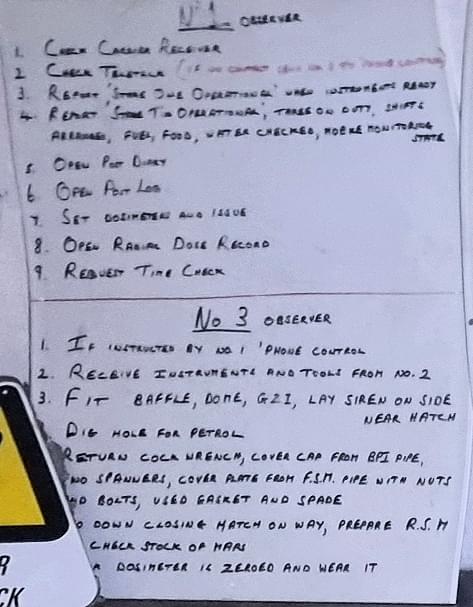 No 1 OBSERVER
1. CHECK CARRIER RECEIVER
2 CHECK TELETALK (IF NO CONTACT
3. REPORT 'STAGE ONE OPERATIONAL' WHEN INSTRUMENTS READY
4. REPORT 'STAGE TWO OPERATIONAL', THREE ON DUTY, SHIFTS
ARRANGED, FUEL, FOOD, WATER CHECKED, MONITORING
STATE
5. OPEN POST DIARY
6 OPEN POST LOG
7. SET DOSIMETERS AND ISSUE
8. OPEN RADIAC DOSE RECORD
9. REQUEST TIME CHECK
No 3 OBSERVER
1. IF INSTRUCTED BY NO. 1 'PHONE CONTROL
2. RECEIVE INSTRUMENTS AND TOOLS FROM NO. 2
3. FIT BAFFLE, DOME, GZI, LAY SIREN ON SIDE
NEAR HATCH
DIG HOLE FOR PETROL
RETURN COCK WRENCH, COVER CAP FROM BPI PIPE,
SPANNERS, COVER PLATE FROM F.S.M. PIPE WITH NUTS
BOLTS, USED GASKET AND SPADE
DOWN CLOSING HATCH ON WAY, PREPARE R.S.M
CHECK STOCK OF MAPS
DOSIMETER IS ZEROED AND WEAR IT
R
CK